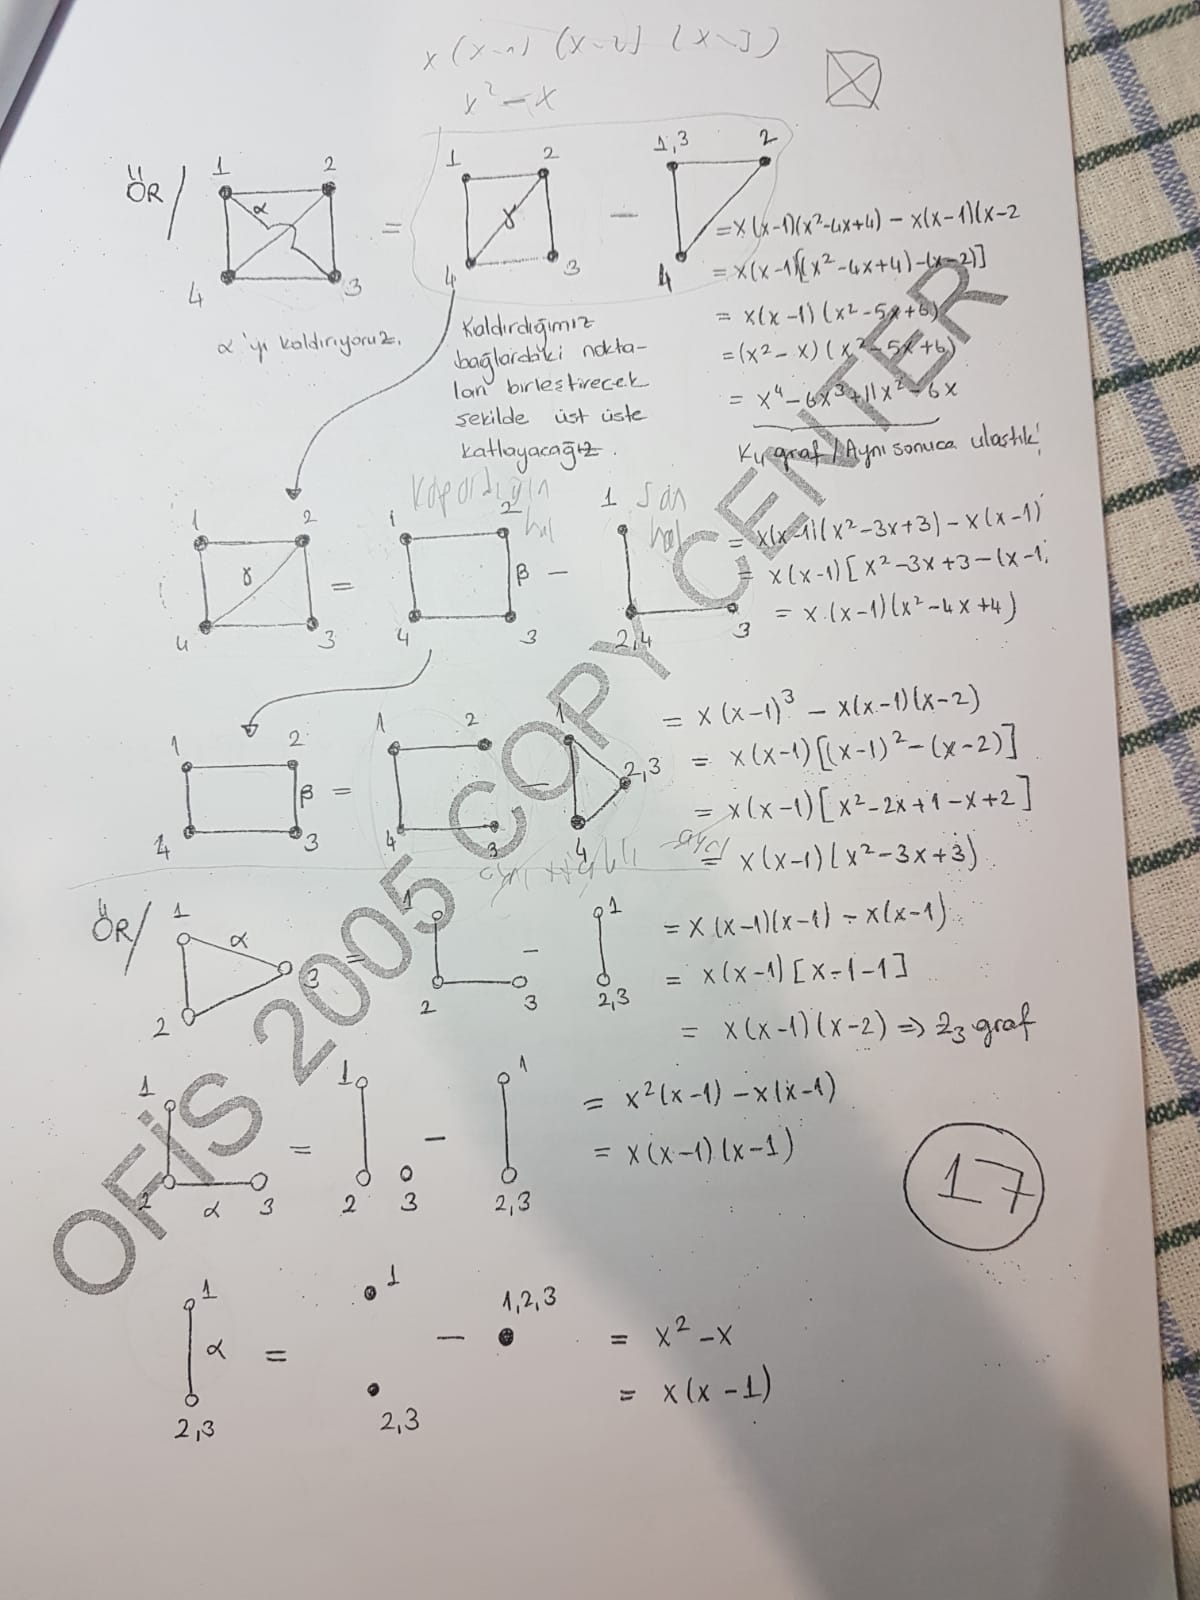 x(x-1) (x-2) (x-3)
x² - x
ÖR/
1 2
α
4 3
=
1 2
γ
4 3
-
1,3 2
4
= x(x-1)(x²-4x+4) - x(x-1)(x-2
= x(x-1)[(x²-4x+4)-(x-2)]
= x(x-1)(x²-5x+6)
= (x²-x)(x²-5x+6)
= x⁴-6x³+11x²-6x
K₄ graf / Aynı sonuca ulaştık!
α'yı kaldırıyoruz.
Kaldırdığımız
bağlardaki nokta-
ları birleştirecek
şekilde üst üste
katlayacağız.
Kopardığın
hal
Son
hal
1 2
γ
4 3
=
1 2
β
4 3
-
1
2,4 3
= x(x-1)(x²-3x+3) - x(x-1)
= x(x-1)[x²-3x+3-(x-1)
= x.(x-1)(x²-4x+4)
1 2
β
4 3
=
1 2
4 3
-
1
2,3
4
= x(x-1)³ - x(x-1)(x-2)
= x(x-1)[(x-1)²-(x-2)]
= x(x-1)[x²-2x+1-x+2]
= x(x-1)(x²-3x+3)
ÖR/
1
α
3
2
=
1
2 3
-
1
2,3
= x(x-1)(x-1) - x(x-1)
= x(x-1)[x-1-1]
= x(x-1)(x-2) => Z₃ graf
1
2 α 3
=
1
2 3
-
1
2,3
= x²(x-1) - x(x-1)
= x(x-1)(x-1)
17
1
α
2,3
=
1
2,3
-
1,2,3
= x² - x
= x(x-1)
OFİS 2005 COPY CENTER